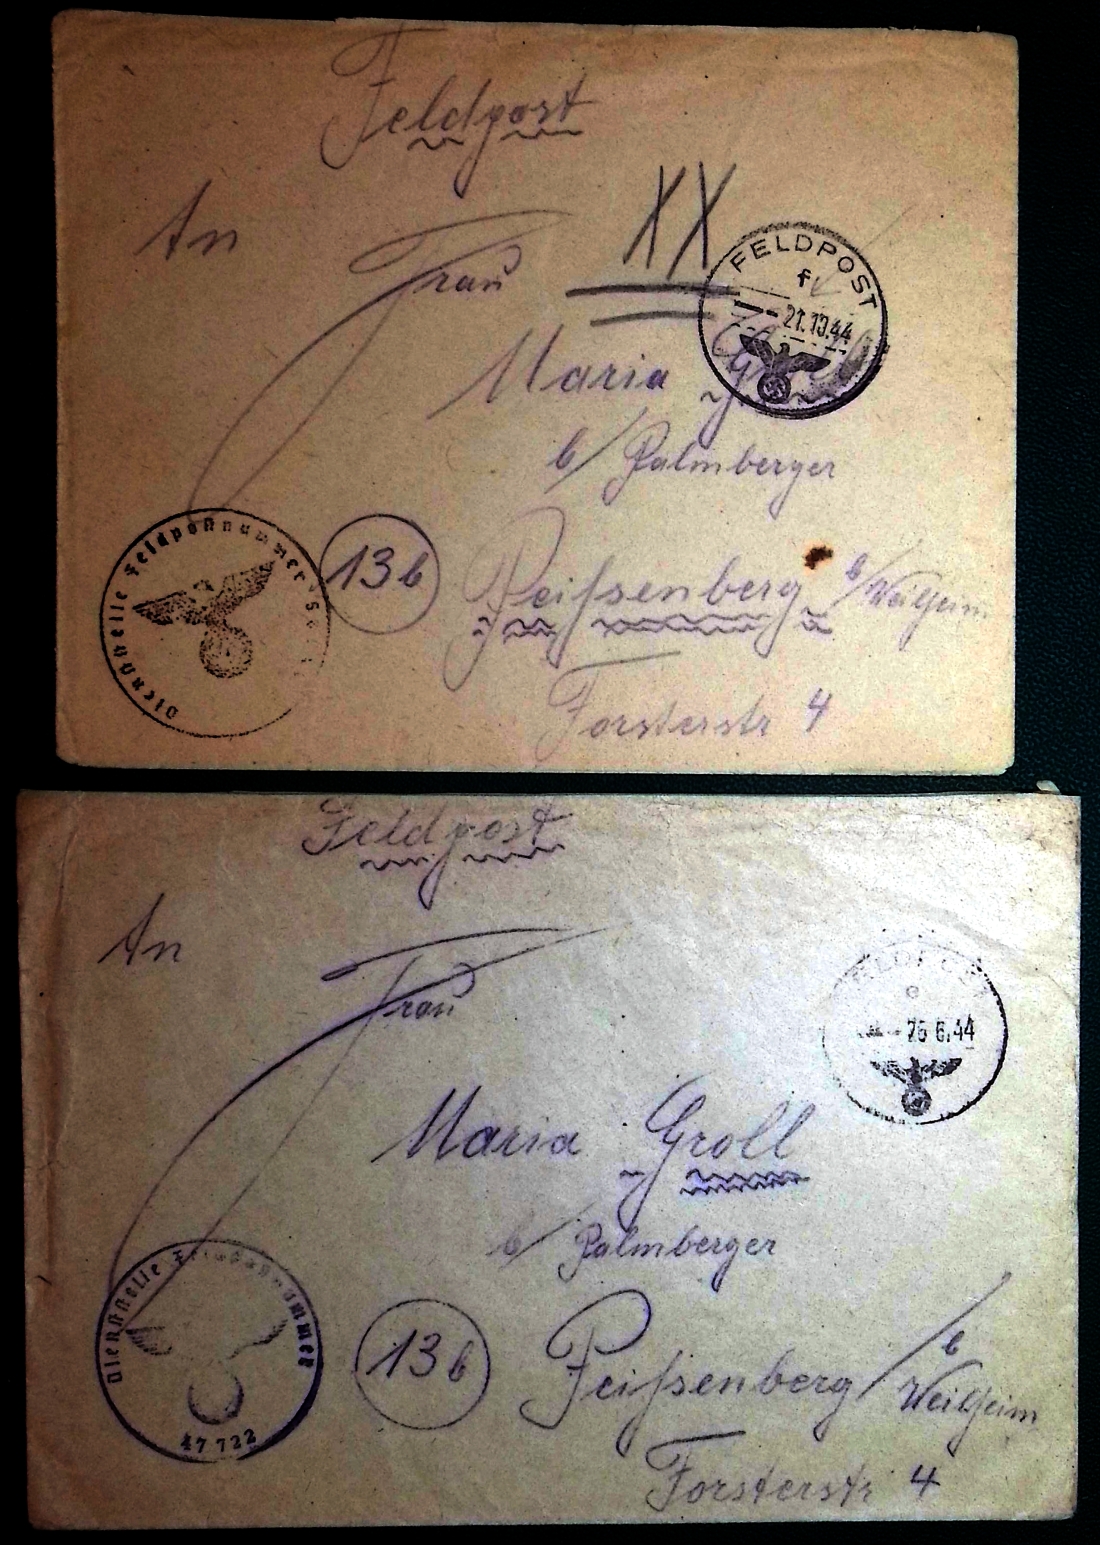 Feldpost
An
XX
Frau
FELDPOST
f
21.10.44
Maria
b/ Palmberger
Dienststelle Feldpostnummer
13b
Peißenberg b/Weilheim
Forsterstr 4
Feldpost
An
Frau
e
25 6.44
Maria Groll
b/ Palmberger
Dienststelle Feldpostnummer
47 722
13b
Peißenberg / b
Weilheim
Forsterstr 4